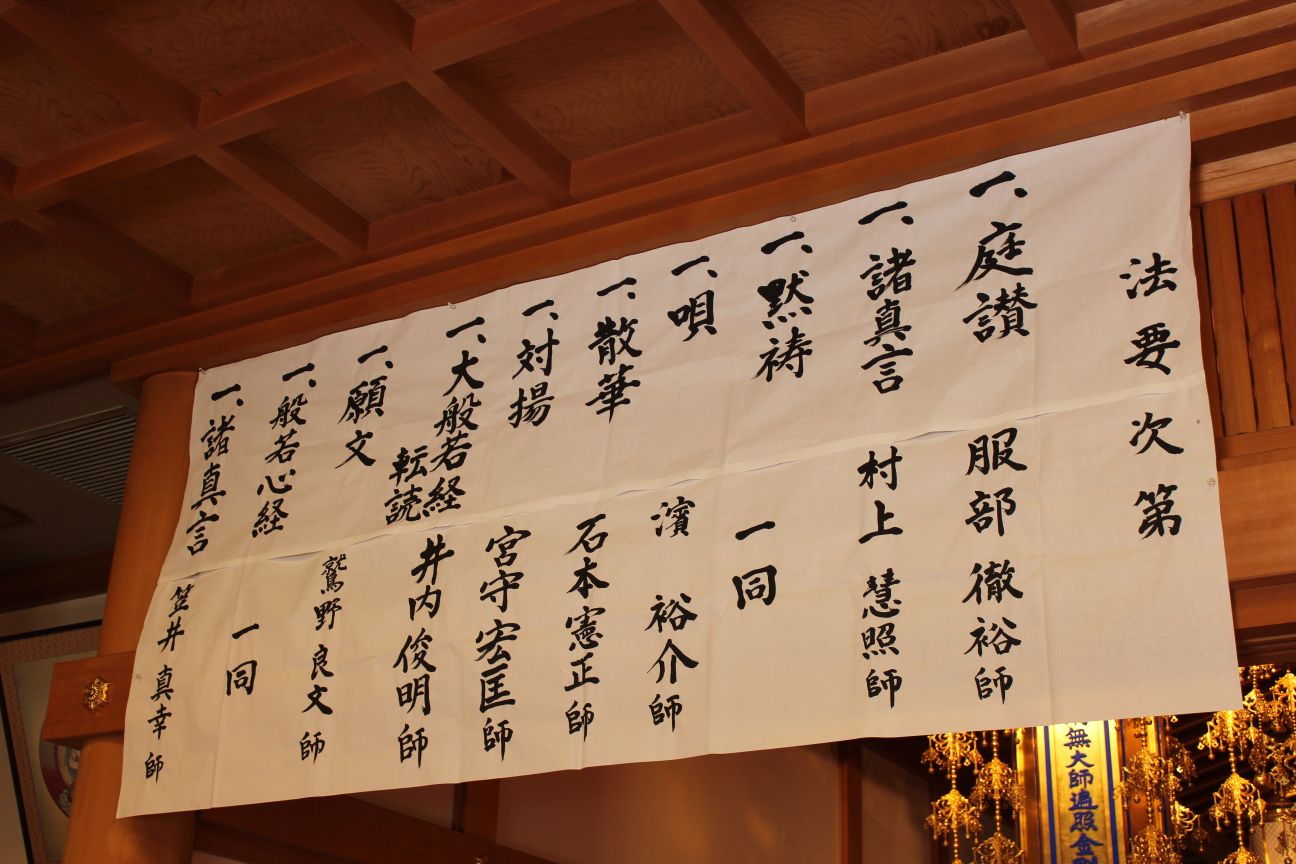 法要次第
一、庭讃 服部 徹裕師
一、諸真言 村上 慧照師
一、黙祷 一同
一、唄 濱 裕介師
一、散華 石本憲正師
一、対揚 宮守宏匡師
一、大般若経
転読 井内俊明師
一、願文 鷲野良文師
一、般若心経 一同
一、諸真言 笠井真幸師
無大師遍照金